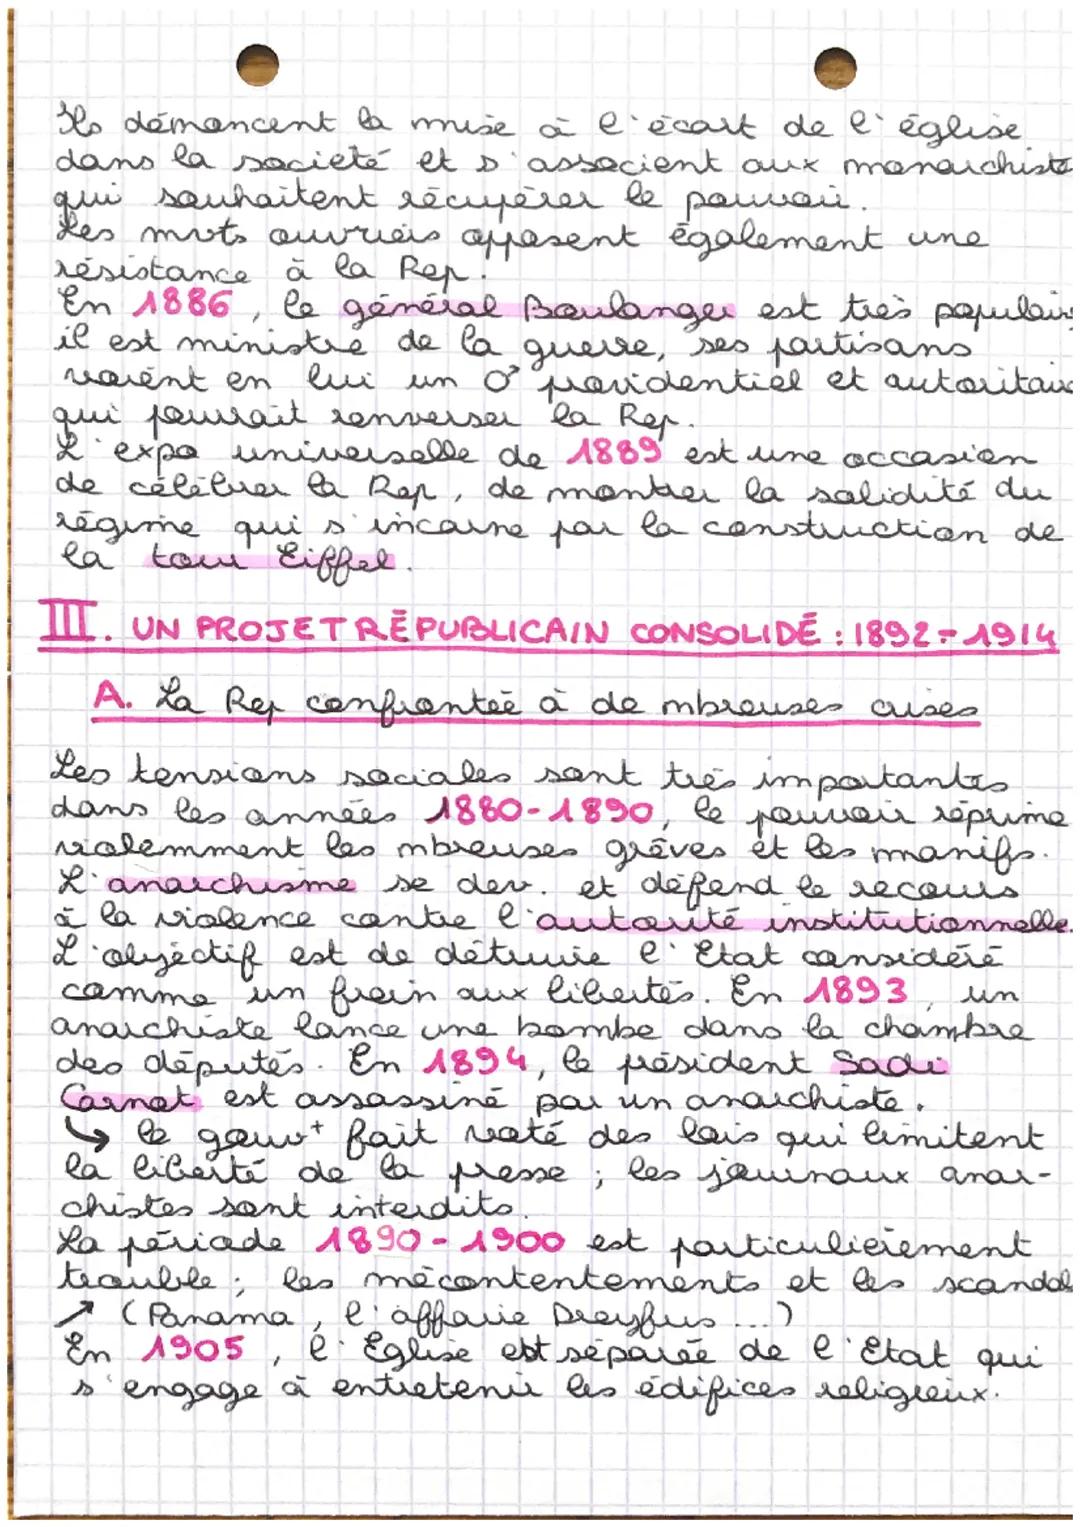 Ils démoncent la mise à l'écart de l'église
dans la société et s'associent aux monarchiste
qui souhaitent récupérer le pouvoir.
Les mvts ouvriers opposent également une
résistance à la Rep.
En 1886, le général Boulanger est très populaire
il est ministre de la guerre, ses partisans
voient en lui un ♂ providentiel et autoritaire
qui pourrait renverser la Rep.
L'expo universelle de 1889 est une occasion
de célébrer la Rep, de montrer la solidité du
régime qui s'incarne par la construction de
la tour Eiffel.
III. UN PROJET RÉPUBLICAIN CONSOLIDÉ : 1892-1914
A. La Rep confrontée à de mbreuses crises
Les tensions sociales sont très importantes
dans les années 1880-1890, le pouvoir réprime
violemment les mbreuses grèves et les manifs.
L'anarchisme se dev. et défend le recours
à la violence contre l'autorité institutionnelle.
L'objectif est de détruire l'Etat considéré
comme un frein aux libertés. En 1893, un
anarchiste lance une bombe dans la chambre
des députés. En 1894, le président Sadi
Carnot est assassiné par un anarchiste.
↳ le gouv+ fait voté des lois qui limitent
la liberté de la presse ; les journaux anar-
chistes sont interdits.
La période 1890-1900 est particulièrement
trouble ; les mécontentements et les scandal
↗ (Panama, l'affaire Dreyfus...)
En 1905, l'Eglise est séparée de l'Etat qui
s'engage à entretenir les édifices religieux.